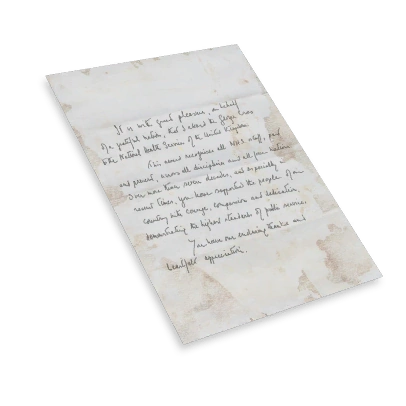 It is with great pleasure, on behalf
of a grateful nation, that I award the George Cross
to the National Health Services of the United Kingdom.
This award recognises all NHS staff, past
and present, across all disciplines and all four nations.
Over more than seven decades, and especially in
recent times, you have supported the people of our
country with courage, compassion and dedication,
demonstrating the highest standards of public service.
You have our enduring thanks and
heartfelt appreciation.